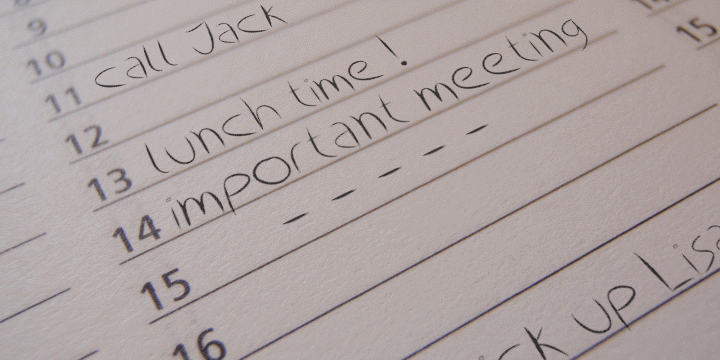 9
10
11 call Jack
12
13 lunch time !
14 important meeting
15 - - - - -
16
ick up Lisa
14
15